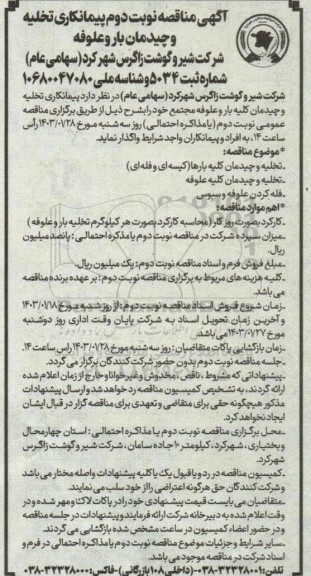 آگهی مناقصه نوبت دوم پیمانکاری تخلیه
و چیدمان بار و علوفه
شرکت شیر و گوشت زاگرس شهرکرد (سهامی عام)
شماره ثبت ۵۰۳۴ و شناسه ملی ۱۰۶۸۰۰۴۷۰۸۰
شرکت شیر و گوشت زاگرس شهرکرد (سهامی عام) در نظر دارد پیمانکاری تخلیه
و چیدمان کلیه بار و علوفه مجتمع خود را بشرح ذیل از طریق برگزاری مناقصه
عمومی نوبت دوم (یا مذاکره احتمالی) روز سه شنبه مورخ ۱۴۰۳/۰۱/۲۸ رأس
ساعت ۱۴، به افراد و پیمانکاران واجد شرایط واگذار نماید.
*موضوع مناقصه:
-تخلیه و چیدمان کلیه بارها (کیسه ای و فله ای)
-تخلیه و چیدمان کلیه علوفه
-فله کردن علوفه و سبوس
*اهم موارد مناقصه:
-کارکرد بصورت روز کار (محاسبه کارکرد بصورت هر کیلوگرم تخلیه بار و علوفه)
-میزان سپرده شرکت در مناقصه نوبت دوم یا مذاکره احتمالی: پانصد میلیون
ریال.
-مبلغ فروش فرم و اسناد مناقصه نوبت دوم: یک میلیون ریال.
-کلیه هزینه های مربوط به برگزاری مناقصه نوبت دوم: بر عهده برنده مناقصه
می باشد.
-زمان شروع فروش اسناد مناقصه نوبت دوم: از روز شنبه مورخ ۱۴۰۳/۰۱/۱۸
و آخرین زمان تحویل اسناد به شرکت پایان وقت اداری روز دوشنبه
مورخ ۱۴۰۳/۰۱/۲۷ می باشد.
-زمان بازگشایی پاکات متقاضیان: روز سه شنبه مورخ ۱۴۰۳/۰۱/۲۸ راس ساعت ۱۴.
-جلسه مناقصه نوبت دوم بدون حضور شرکت کنندگان برگزار می گردد.
-پیشنهاداتی که مشروط، ناقص، مخدوش و غیر خوانا و خارج از زمان اعلام شده
ارائه گردند، به تشخیص کمیسیون مناقصه رد خواهد شد و ارسال پیشنهادات
مذکور هیچگونه حقی برای متقاضی و تعهدی برای مناقصه گزار در قبال ایشان
ایجاد نخواهد کرد.
-محل برگزاری مناقصه نوبت دوم یا مذاکره احتمالی: استان چهارمحال
و بختیاری، شهرکرد، کیلومتر ۱۰ جاده سامان، شرکت شیر و گوشت زاگرس
شهرکرد.
-کمیسیون مناقصه در رد و یا قبول یک یا کلیه پیشنهادات واصله مختار می باشد
و شرکت کنندگان حق هرگونه اعتراضی را از خود سلب می نمایند.
-متقاضیان می بایست قیمت پیشنهادی خود را در پاکات لاک و مهر شده و در
وقت اعلام شده به دبیرخانه شرکت ارائه فرمایند و پیشنهادات در جلسه مناقصه
و در حضور اعضاء کمیسیون در ساعت مشخص شده بازگشایی می گردند.
-سایر شرایط و جزئیات موضوع مناقصه نوبت دوم یا مذاکره احتمالی در فرم و
اسناد شرکت در مناقصه موجود می باشد.
تلفن: ۰۳۸-۳۲۳۲۸۰۰۱ (داخلی ۱۰۸ بازرگانی) - فاکس: ۰۳۸-۳۲۳۲۸۰۰۰